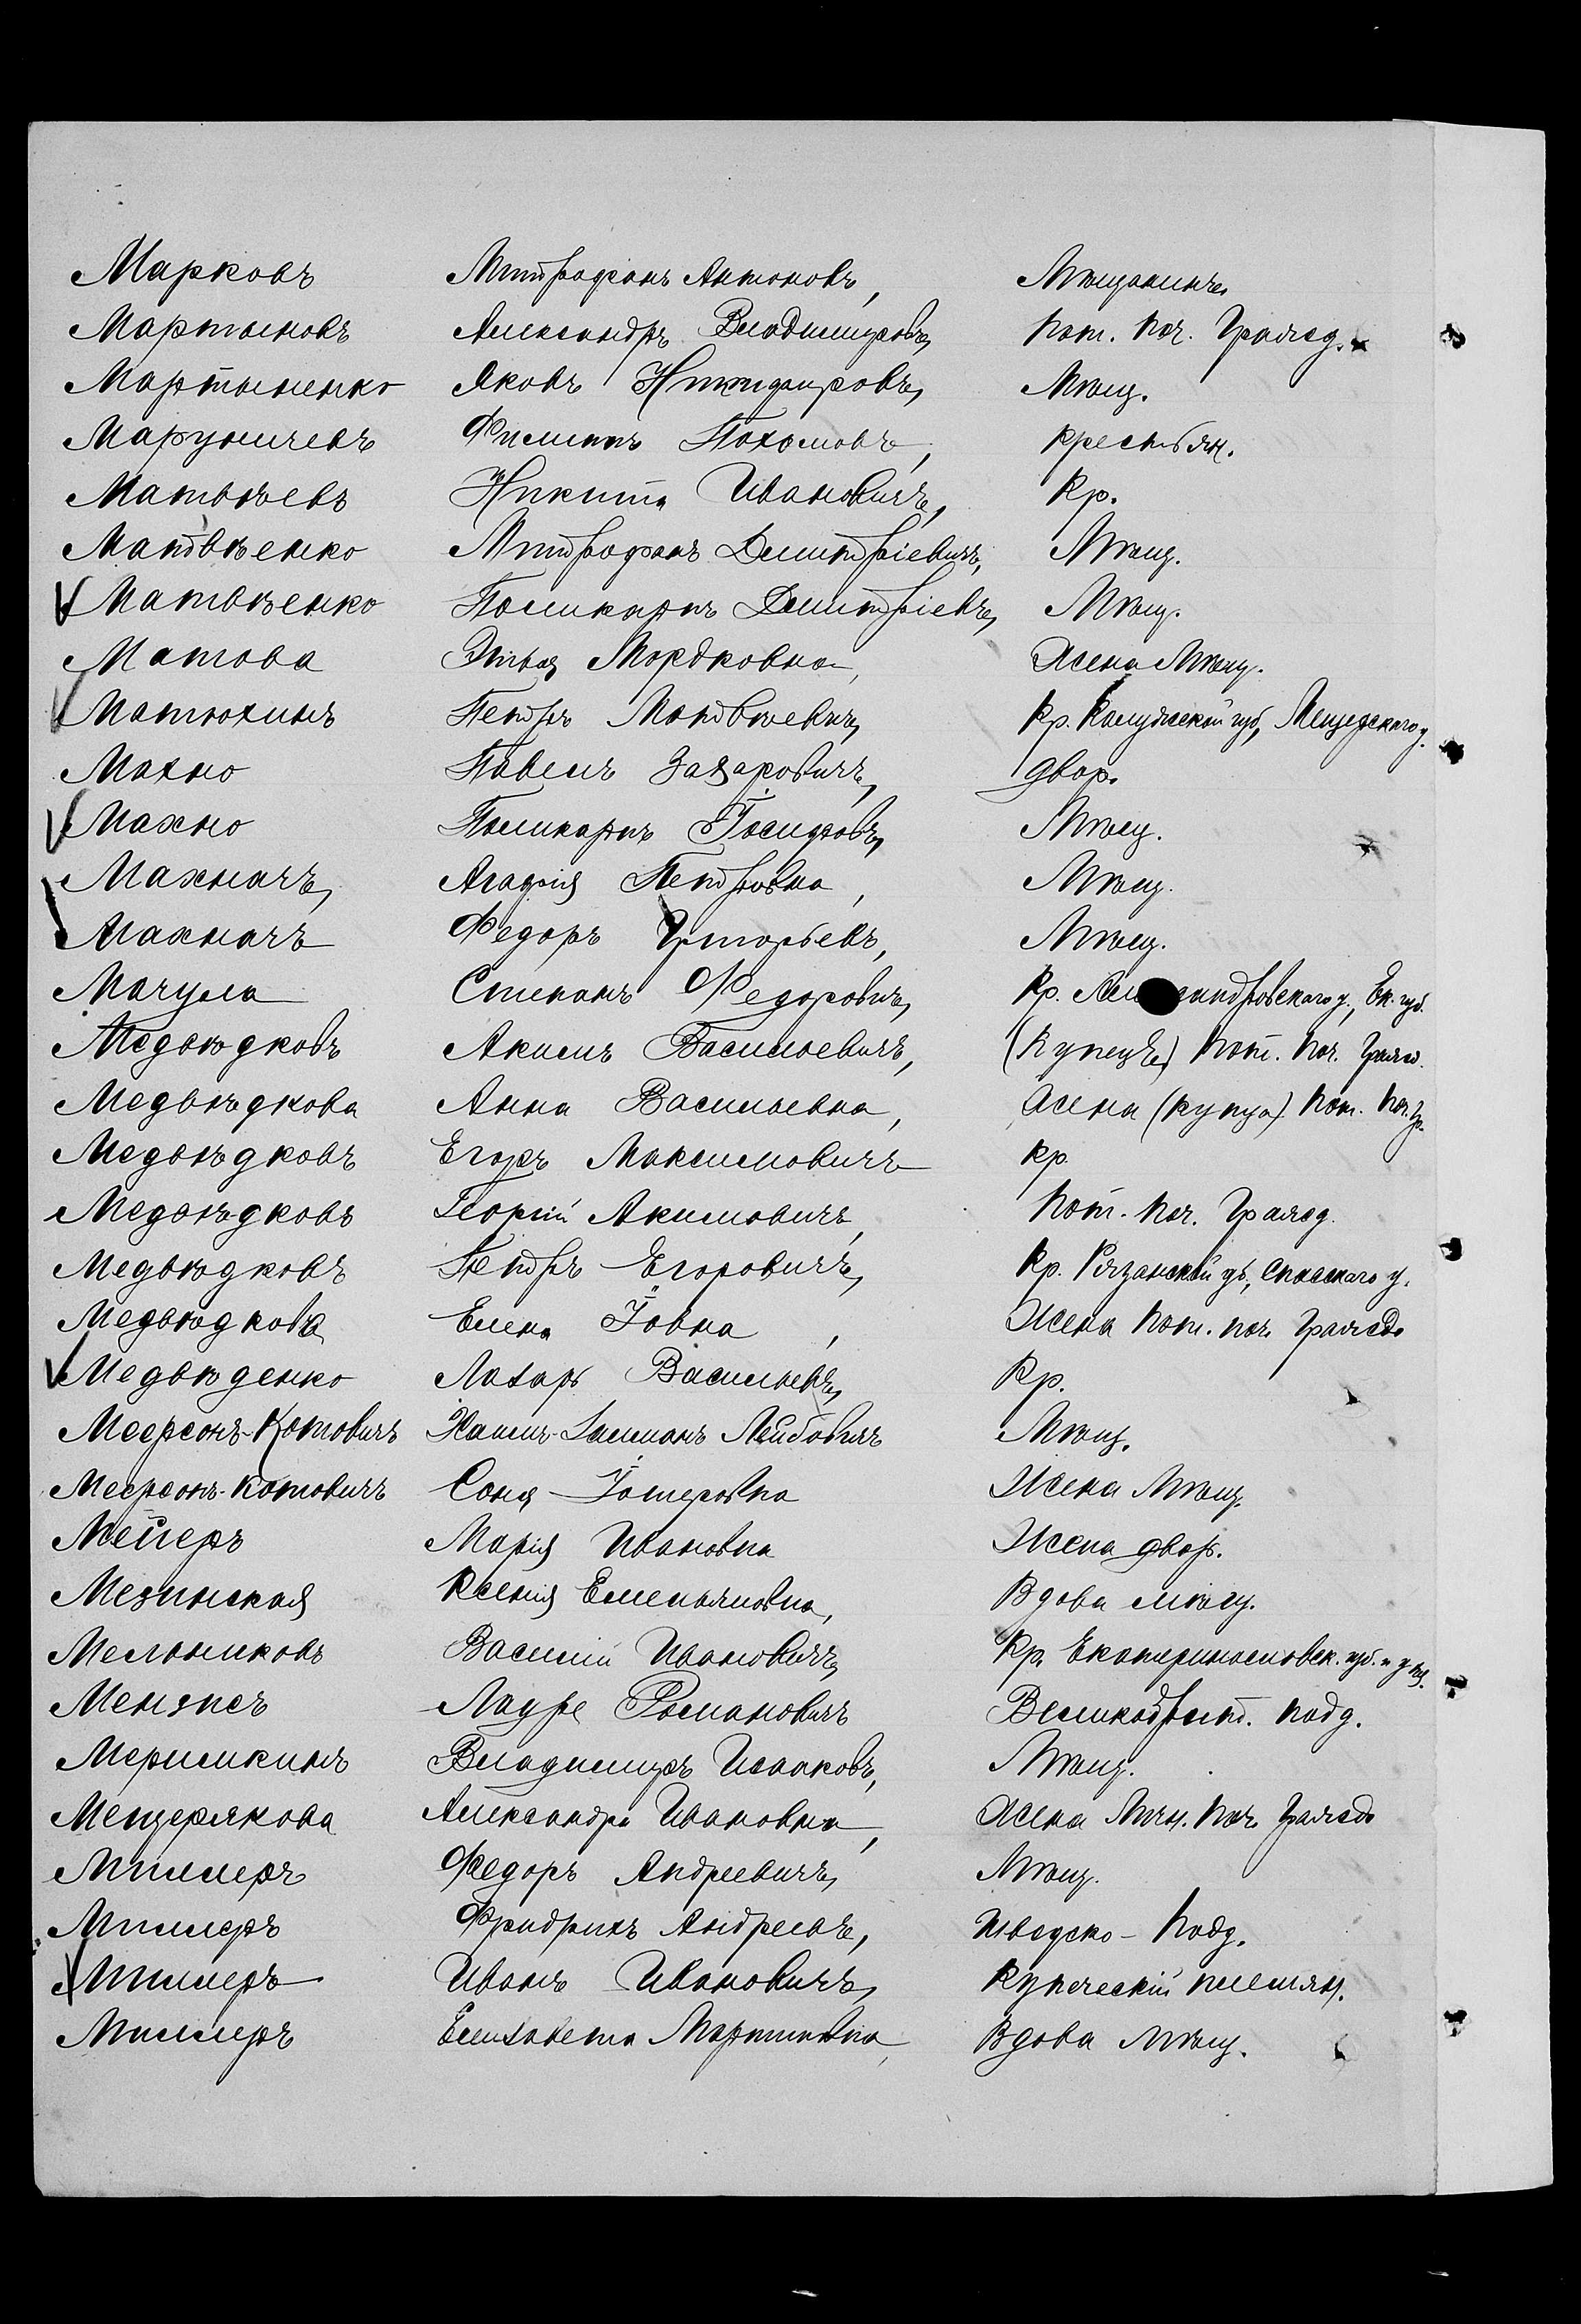 Марковъ Митрофанъ Антоновъ, Мѣщанинъ
Мартыновъ Александръ Владимировъ, Пот. Поч. Гражд.
Мартыненко Яковъ Никифоровъ, Мѣщ.
Маруничевъ Филиппъ Пахомовъ, Крестьян.
Матвѣевъ Никита Ивановичъ, Кр.
Матвѣенко Митрофанъ Дмитріевичъ, Мѣщ.
Матвѣенко Поликарпъ Дмитріевъ, Мѣщ.
Матова Мордковна, Жена Мѣщ.
Матюхинъ Петръ Матвѣевичъ, Кр. Калужской губ., Мещевскаго у.
Махно Павелъ Захаровичъ, двор.
Махно Поликарпъ Іосифовъ, Мѣщ.
Махначъ, Агафія Петровна, Мѣщ.
Махначъ Федоръ Григорьевъ, Мѣщ.
Мачула Степанъ Федоровичъ, Кр. Ал андровскаго у., Ек. губ.
Медвѣдковъ Акимъ Васильевичъ, (Купецъ) Пот. Поч. Гражд.
Медвѣдкова Анна Васильевна, Жена (купца) Пот. Поч. Гр.
Медвѣдковъ Егоръ Максимовичъ Кр.
Медвѣдковъ Георгій Акимовичъ, Пот. Поч. Гражд.
Медвѣдковъ Петръ Егоровичъ, Кр. Рязанской гб., Спасскаго у.
Медвѣдкова Елена Іовна, Жена Пот. поч. Гражд.
Медвѣденко Лазарь Васильевъ, Кр.
Меерсонъ-Котовичъ Хаимъ-Залманъ Лейбовичъ Мѣщ.
Меерсонъ-Котовичъ Соня Жена Мѣщ.
Мейеръ Марія Ивановна Жена двор.
Мезинская Ксенія Емельяновна, Вдова мѣщ.
Мельниковъ Василій Ивановичъ, Кр. Екатеринославск. губ. и уѣз.
Мензисъ Романовичъ Великобрит. подд.
Меримкинъ Владимиръ Исааковъ, Мѣщ.
Мещерякова Александра Ивановна, Жена Личн. Поч. Гражд.
Миллеръ Федоръ Андреевичъ, Мѣщ.
Миллеръ Фридрихъ Андреевъ, Шведско-Подд.
Миллеръ Иванъ Ивановичъ, Купеческій племян.
Миллеръ Елизавета Мартиновна, Вдова Мѣщ.